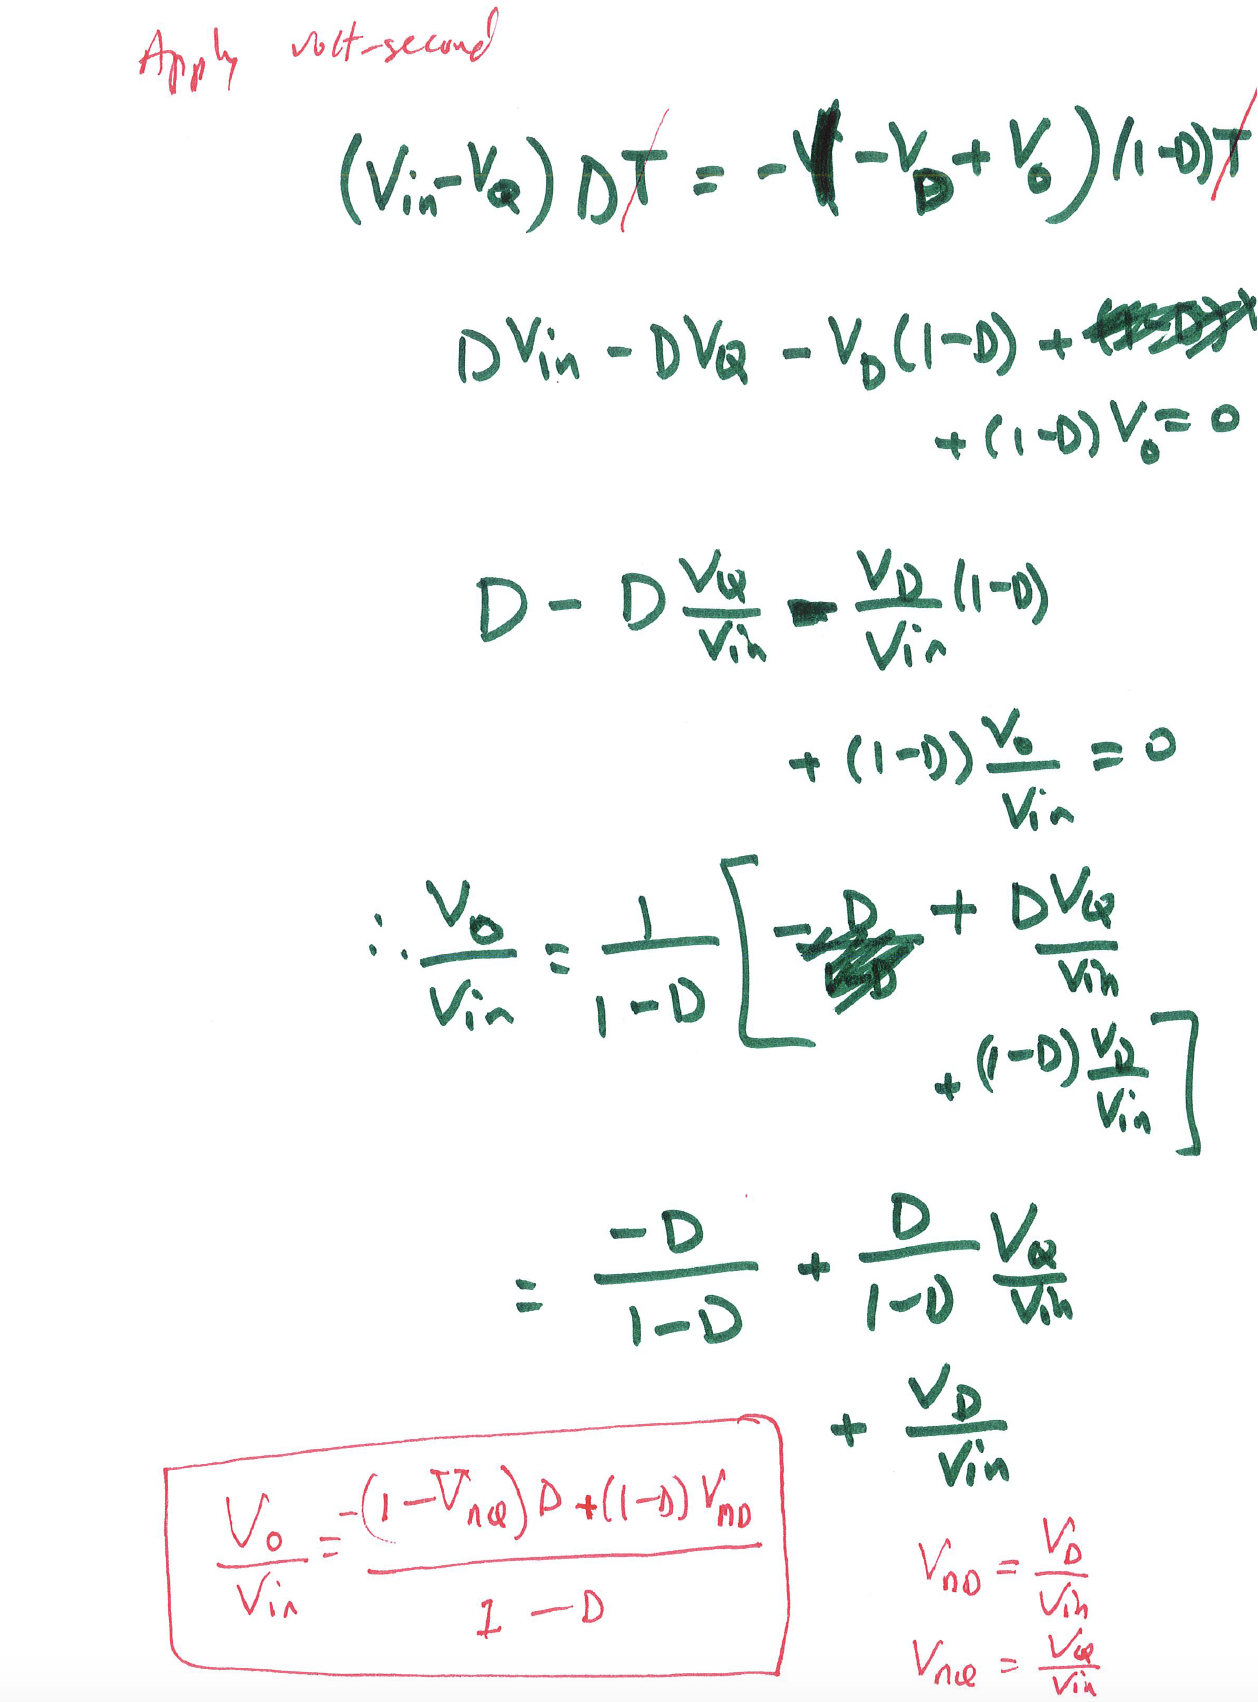 Apply volt-second
(Vin-VQ) DT = -(-VD+Vo)(1-D)T
DVin - DVQ - VD(1-D) +
+(1-D)Vo=0
D - D VQ/Vin - VD/Vin (1-D)
+(1-D) Vo/Vin = 0
∴ Vo/Vin = 1/(1-D) [ -D + DVQ/Vin
+(1-D) VD/Vin ]
= -D/(1-D) + D/(1-D) VQ/Vin
+ VD/Vin
Vo/Vin = (-(1-VnQ)D+(1-D)VnD)/(1-D)
VnD = VD/Vin
VnQ = VQ/Vin